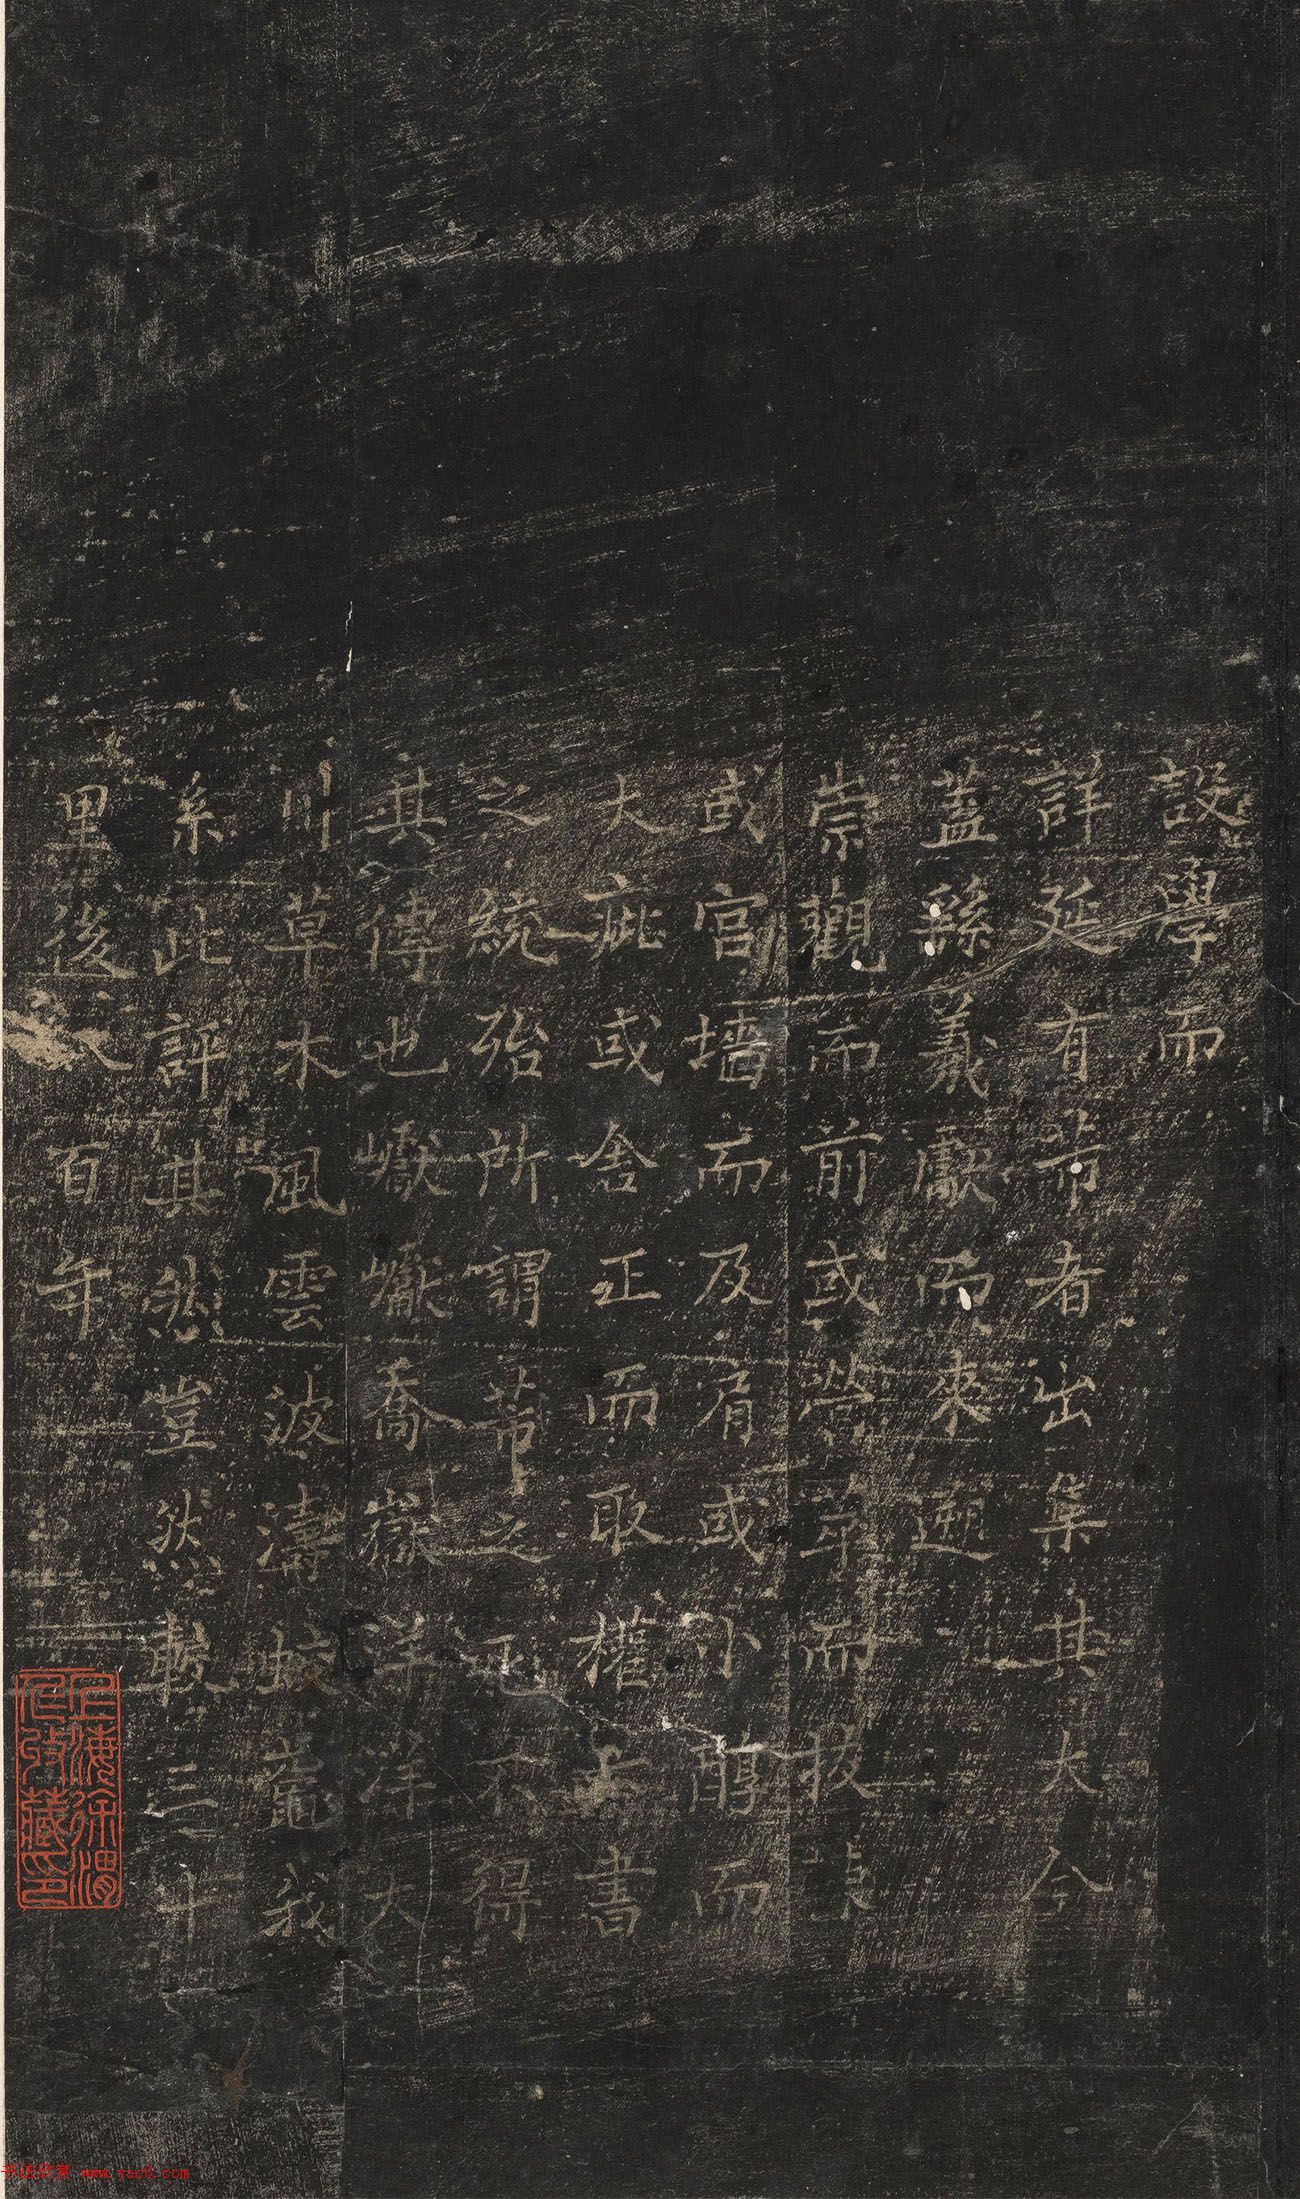 設學而
詳延有芾者出集其大今
蓋繇羲獻而來遡
崇觀而前或營萃而拔
或宮墻而及肩或小醇而
大疵或舍正而取權書
之統殆所謂芾之不得
其傳也巘巘喬嶽洋洋大
川草木風雲波濤蛟鼉我
系此評其然豈然載三十
里後八百年
上海徐渭仁收藏印
书法欣赏 www.yac8.com